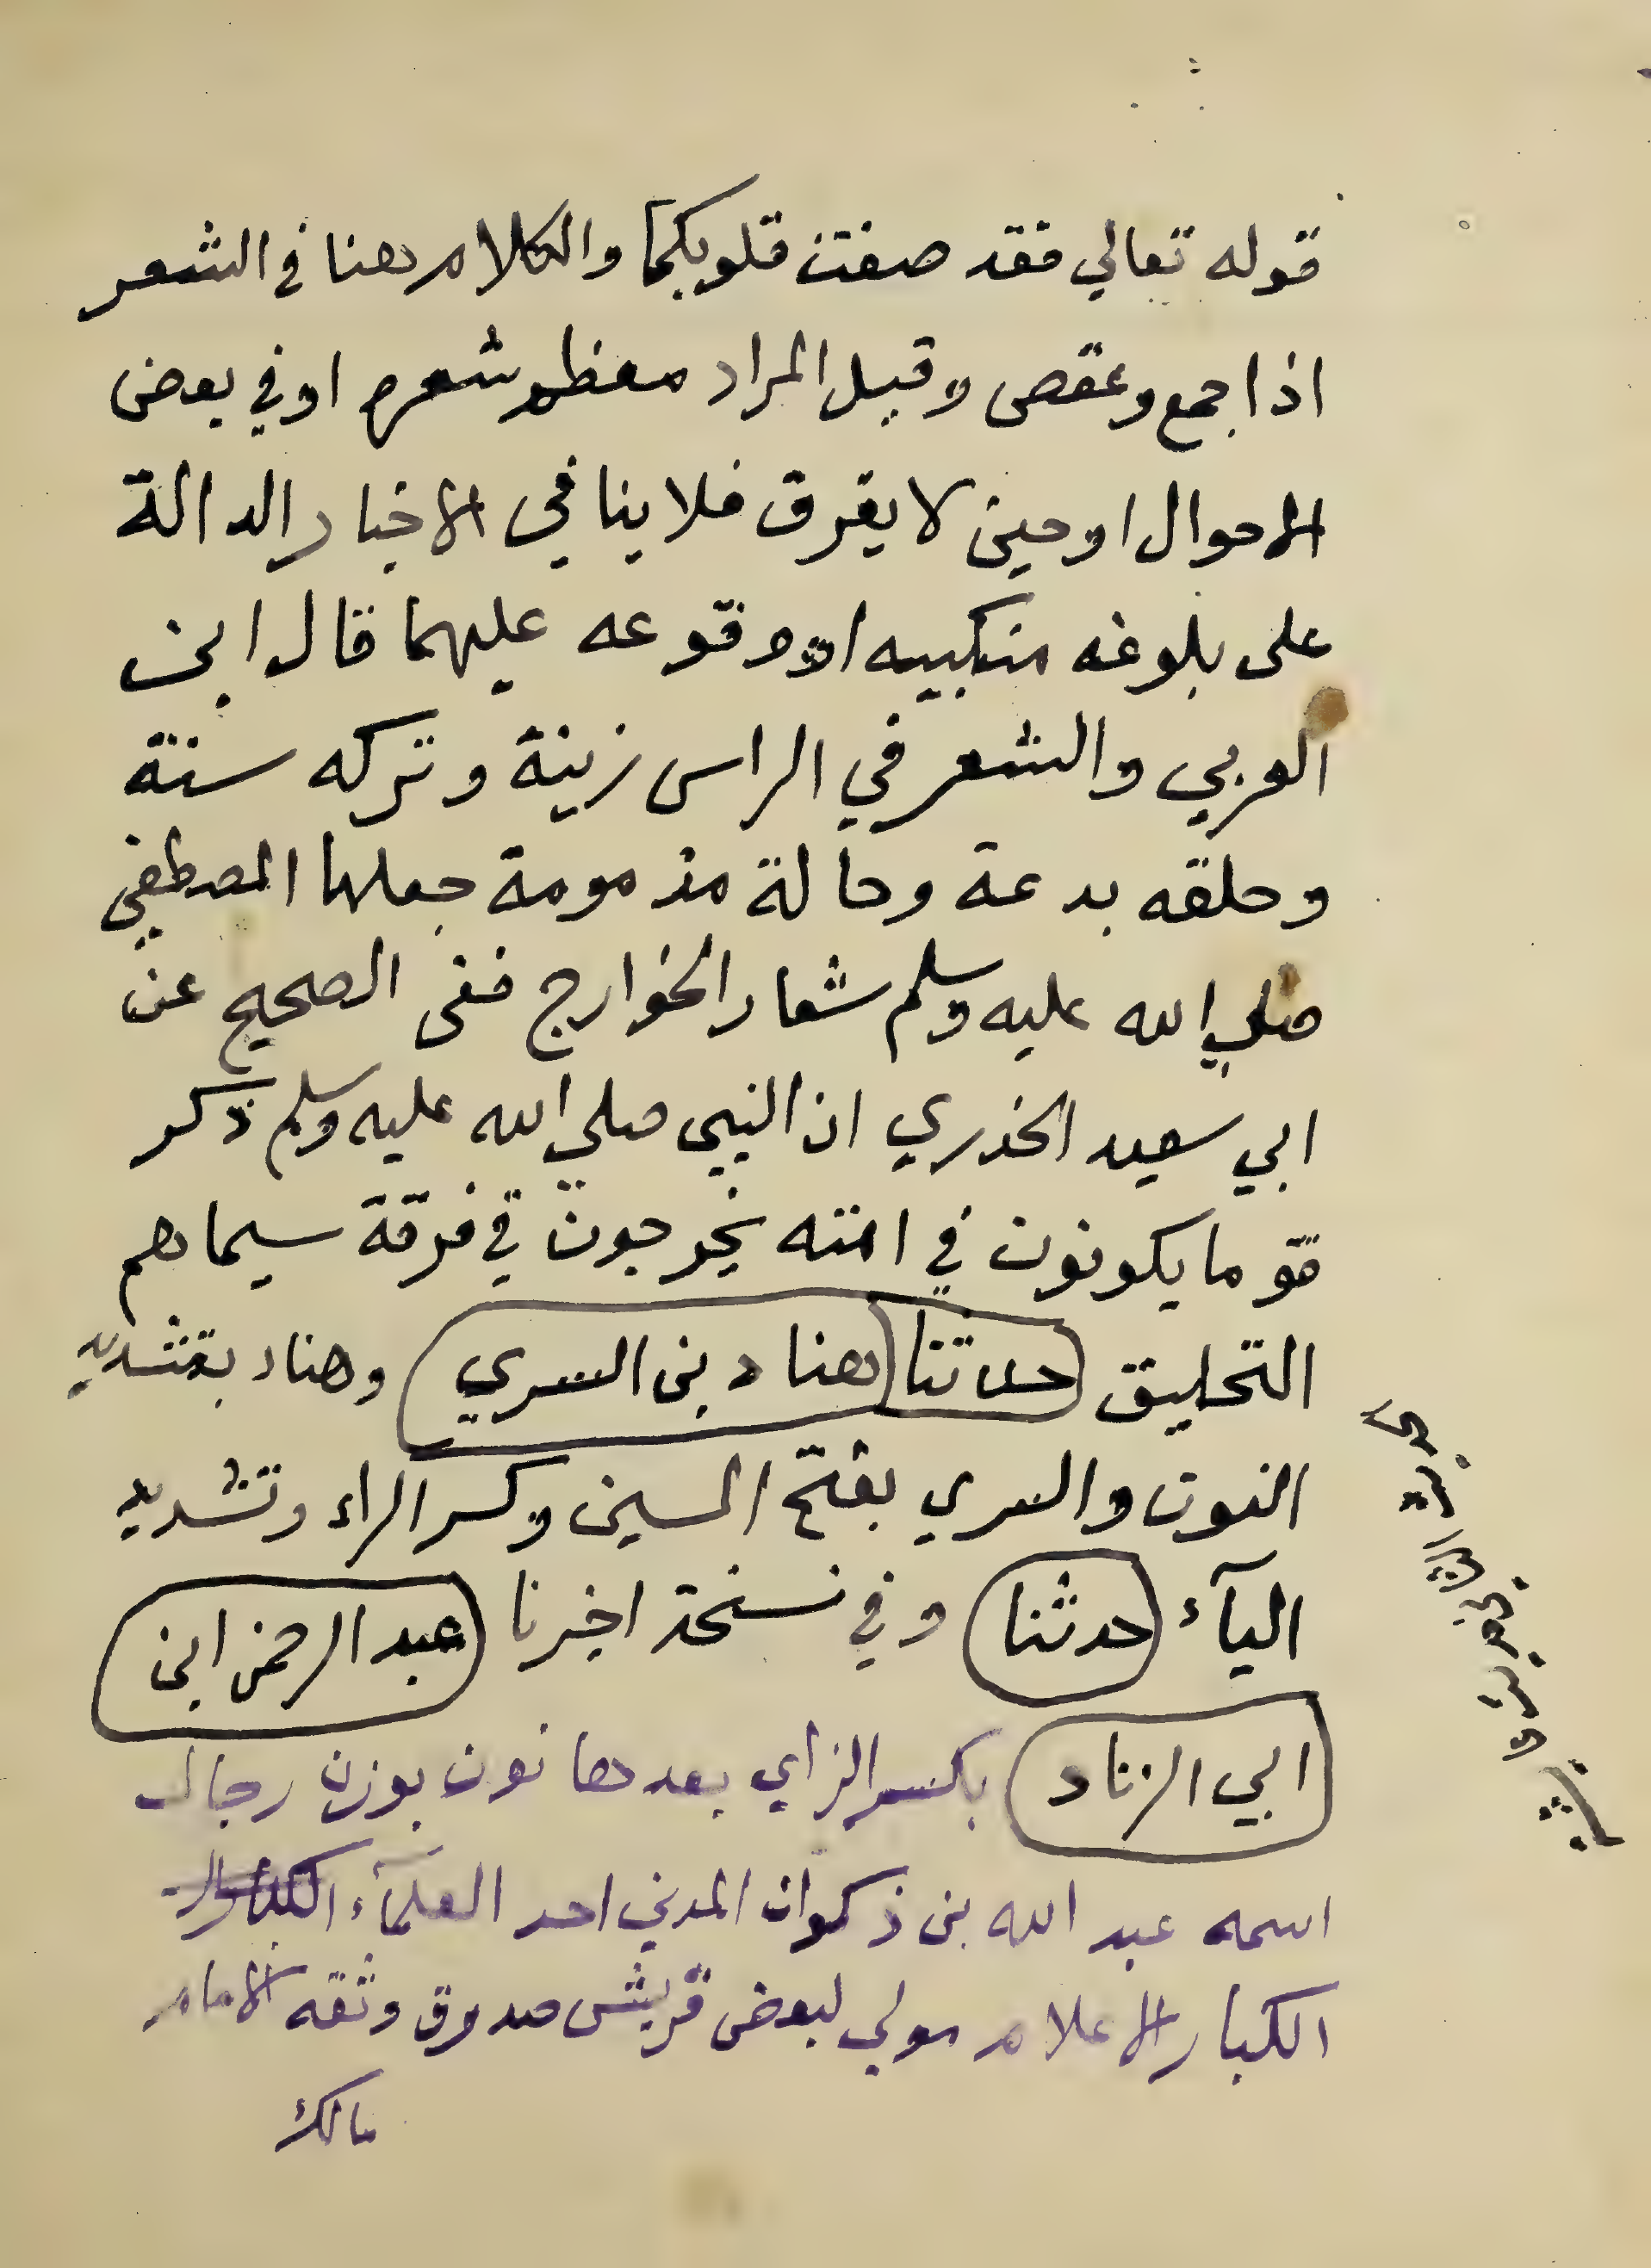 قوله تعالي فقد صغت قلوبكما والكلام هنا في الشعر
اذا جمع وعقص وقيل المراد معظم شعره او في بعض
الاحوال او حين لا يفرق فلا ينافي الاخبار الدالة
على بلوغه منكبيه او وقوعه عليهما قال ابن
العربي والشعر في الراس زينة وتركه سنة
وحلقه بدعة وحالة مذمومة جعلها المصطفي
صلي الله عليه وسلم شعار الخوارج ففى الصحيح عن
ابي سعيد الخدري ان النبي صلي الله عليه وسلم ذكر
قوما يكونون في امته يخرجون في فرقة سيماهم
التحليق حدثنا هناد بن السري وهناد بتشديد
النون والسري بفتح السين وكسر الراء وتشديد
اليآء حدثنا وفي نسخة اخبرنا عبد الرحمن ابن
ابي الزناد بكسر الزاي بعدها نون بوزن رجال
اسمه عبد الله بن ذكوان المدني احد العلمآء
الكبار الاعلام مولي لبعض قريش صدوق وثقه الامام
مالك